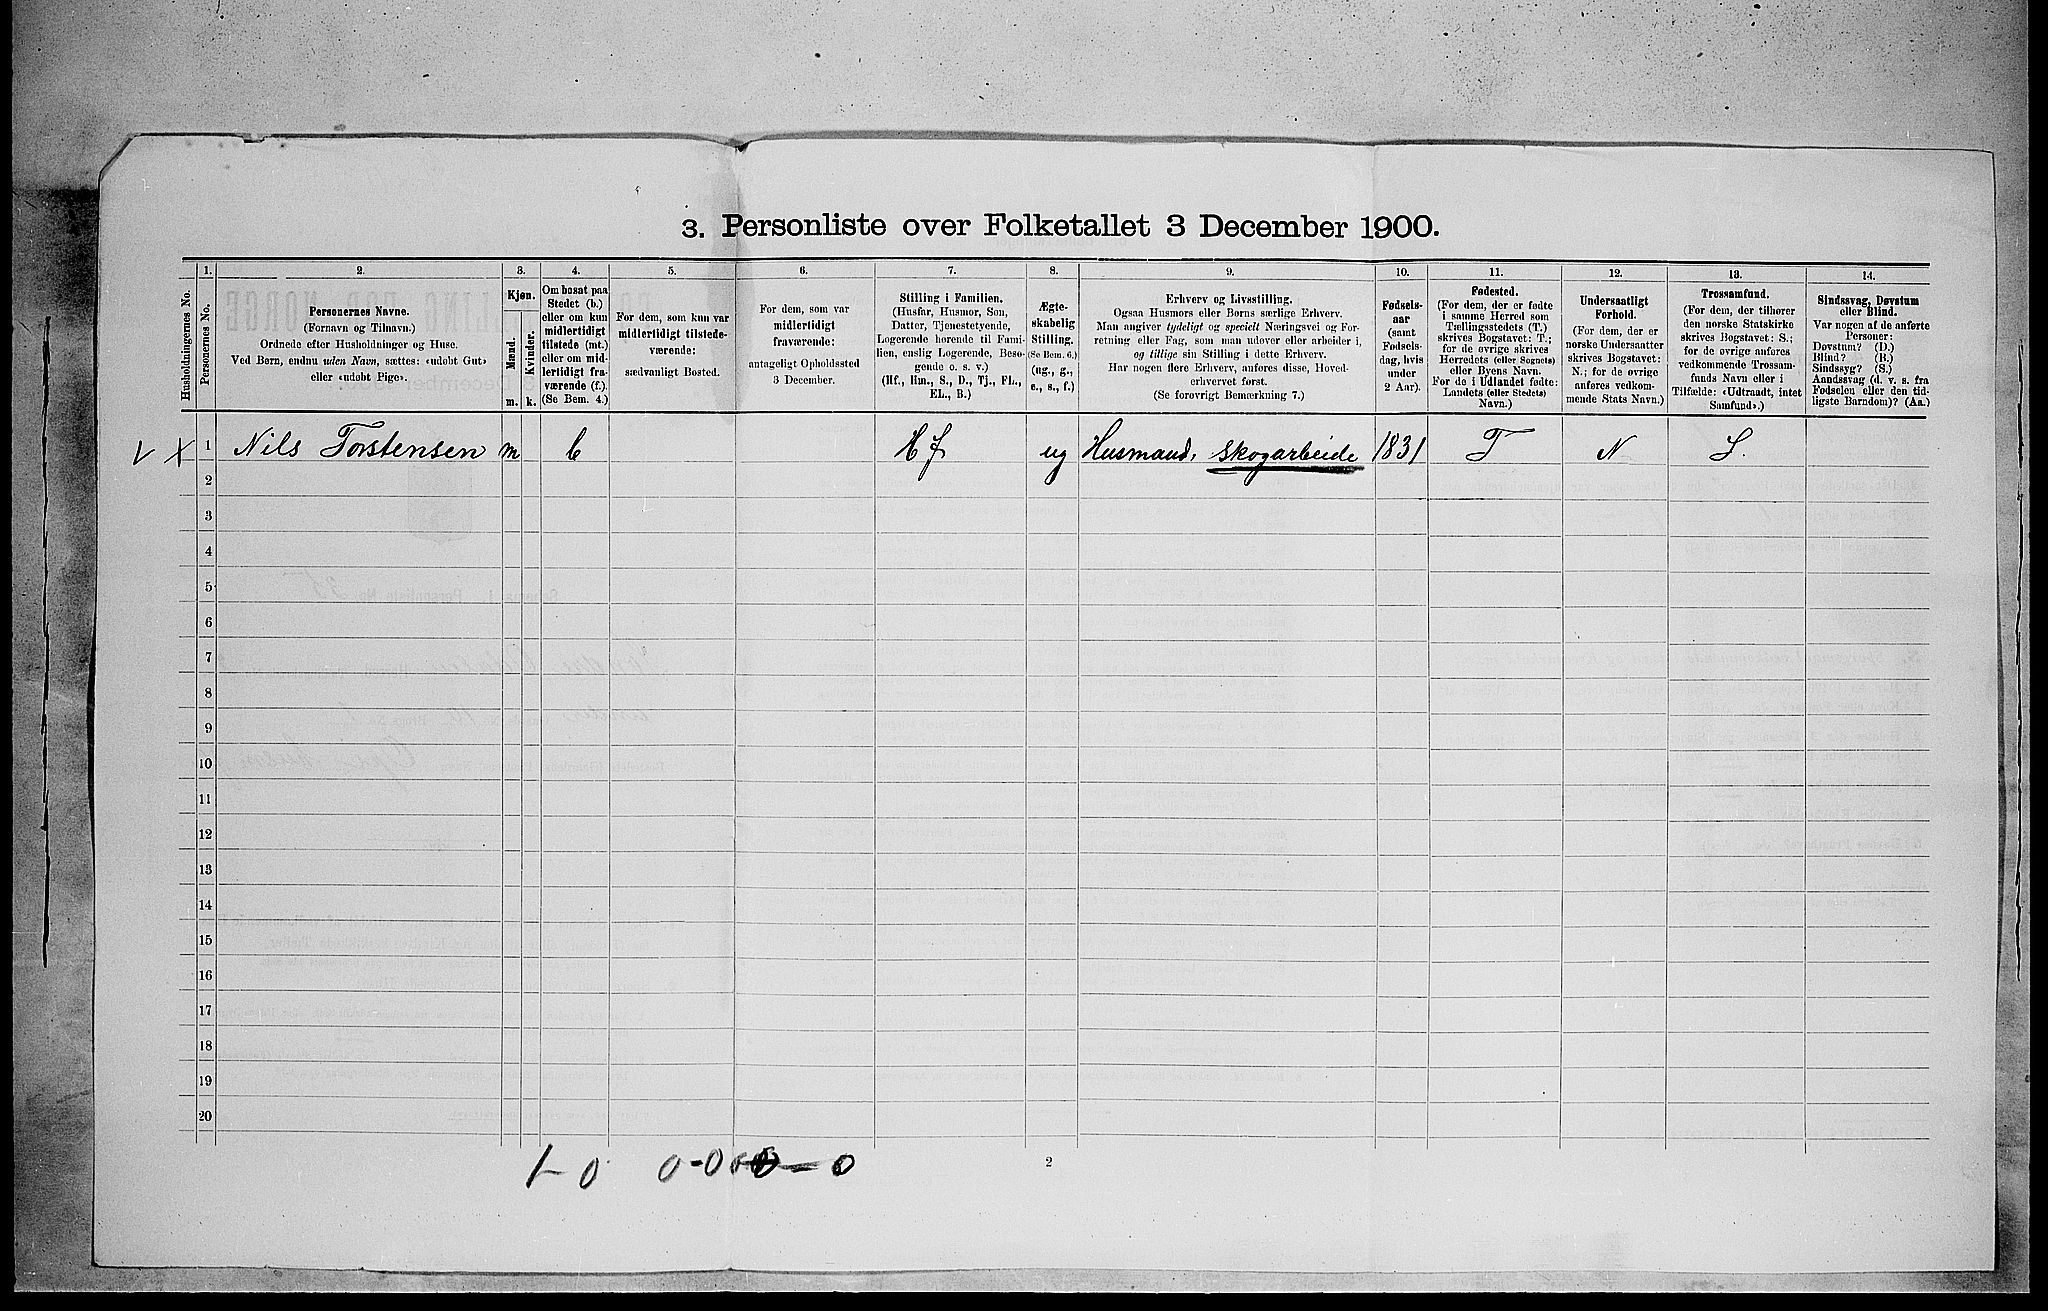 3. Personliste over Folketallet 3 December 1900.
Husholdningernes No.
1.
Personernes No.
2.
Personernes Navne.
(Fornavn og Tilnavn.)
Ordnede efter Husholdninger og Huse.
Ved Børn, endnu uden Navn, sættes: «udøbt Gut»
eller «udøbt Pige».
3.
Kjøn.
Mænd.
m.
Kvinder.
k.
4.
Om bosat paa
Stedet (b.)
eller om kun
midlertidigt
tilstede (mt.)
eller om mid-
lertidigt fra-
værende (f.).
(Se Bem. 4.)
5.
For dem, som kun var
midlertidigt tilstede-
værende:
sædvanligt Bosted.
6.
For dem, som var
midlertidigt
fraværende:
antageligt Opholdssted
3 December.
7.
Stilling i Familien.
(Husfar, Husmor, Søn,
Datter, Tjenestetyende,
Logerende hørende til Fami-
lien, enslig Logerende, Besø-
gende o. s. v.)
(Hf., Hm., S., D., Tj., FL.,
EL., B.)
8.
Ægte-
skabelig
Stilling.
(Se Bem. 6.)
(ug., g.,
e., s., f.)
9.
Erhverv og Livsstilling.
Ogsaa Husmors eller Børns særlige Erhverv.
Man angiver tydeligt og specielt Næringsvei og For-
retning eller Fag, som man udøver eller arbeider i,
og tillige sin Stilling i dette Erhverv.
Har nogen flere Erhverv, anføres disse, Hoved-
erhvervet først.
(Se forøvrigt Bemærkning 7.)
10.
Fødsels-
aar
(samt
Fødsels-
dag, hvis
under
2 Aar).
11.
Fødested.
(For dem, der er fødte
i samme Herred som
Tællingsstedets (T.)
skrives Bogstavet: T.;
for de øvrige skrives
Herredets (eller Sognets)
eller Byens Navn.
For de i Udlandet fødte:
Landets (eller Stedets)
Navn.)
12.
Undersaatligt
Forhold.
(For dem, der er
norske Undersaatter
skrives Bogstavet:
N.; for de øvrige
anføres vedkom-
mende Stats Navn.)
13.
Trossamfund.
(For dem, der tilhører
den norske Statskirke
skrives Bogstavet: S.;
for de øvrige anføres
vedkommende Trossam-
funds Navn eller i
Tilfælde: «Udtraadt, intet
Samfund».)
14.
Sindssvag, Døvstum
eller Blind.
Var nogen af de anførte
Personer:
Døvstum? (D.)
Blind? (B.)
Sindssyg? (S.)
Aandssvag (d. v. s. fra
Fødselen eller den tid-
ligste Barndom)? (Aa.)
V X 1 Nils Torstensen m b Hf ug Husmand, skogarbeide 1831 T N S.
2
3
4
5
6
7
8
9
10
11
12
13
14
15
16
17
18
19
20
1-0 0-0
0
2